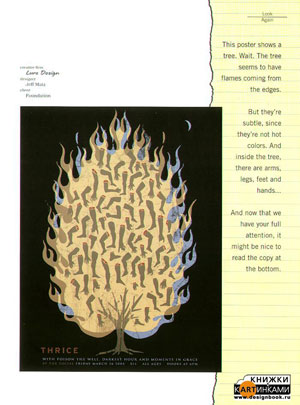 Look
Again
creative firm
Lure Design
designer
Jeff Matz
client
Foundation
This poster shows a
tree. Wait. The tree
seems to have
flames coming from
the edges.
But they're
subtle, since
they're not hot
colors. And
inside the tree,
there are arms,
legs, feet and
hands...
And now that we
have your full
attention, it
might be nice to
read the copy at
the bottom.
THRICE
WITH POISON THE WELL, DARKEST HOUR AND MOMENTS IN GRACE
FRIDAY MARCH 26 2004 ALL AGES DOORS AT 6PM
КНИЖКИ
с КАРТИНКАМИ
www.designbook.ru